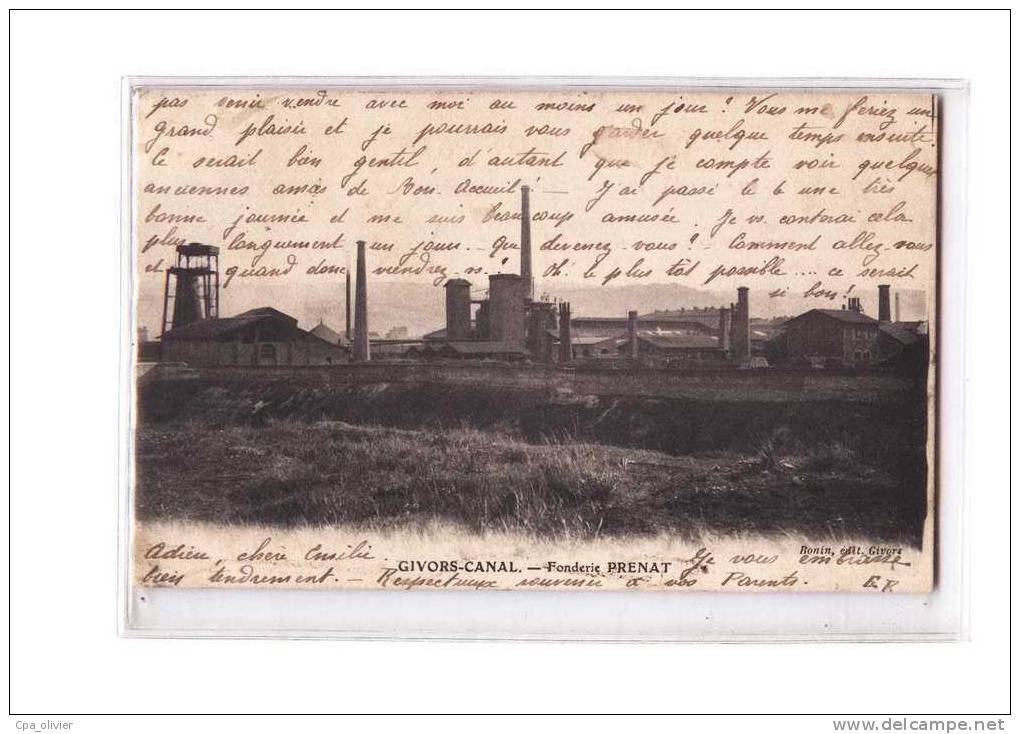 pas venir vendre avec moi au moins un jour ? Vous me feriez un
grand plaisir et je pourrais vous garder quelque temps ensuite.
Ce serait bien gentil d'autant que je compte voir quelques
anciennes amies de Bon-Accueil ! — J'ai passé le 6 une très
bonne journée et me suis beaucoup amusée. Je vs. conterai cela
plus longuement un jour. - Que devenez-vous ? - Comment allez-vous
et quand donc viendrez-vs ? Oh ! le plus tôt possible .... ce serait
si bon !
Bonin, edit. Givors
Adieu, chère Emilie. Je vous embrasse
GIVORS-CANAL. — Fonderie PRENAT
bien tendrement. — Respectueux souvenir à vos Parents. E R
Cpa_olivier
www.delcampe.net